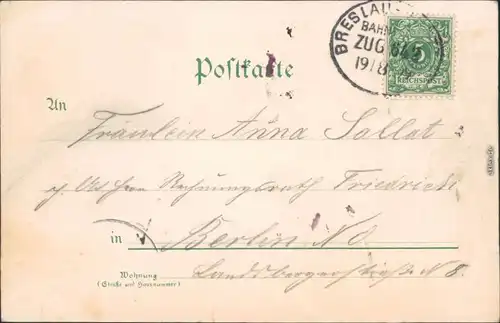 BRESLAU
BAHN
ZUG
19/8
5
REICHSPOST
Postkarte
An
Fräulein Anna Sallat
Rechnungsrath Friedrich
in Berlin N.O.
Wohnung
(Straße und Hausnummer)
Landsbergerstraße N 8.